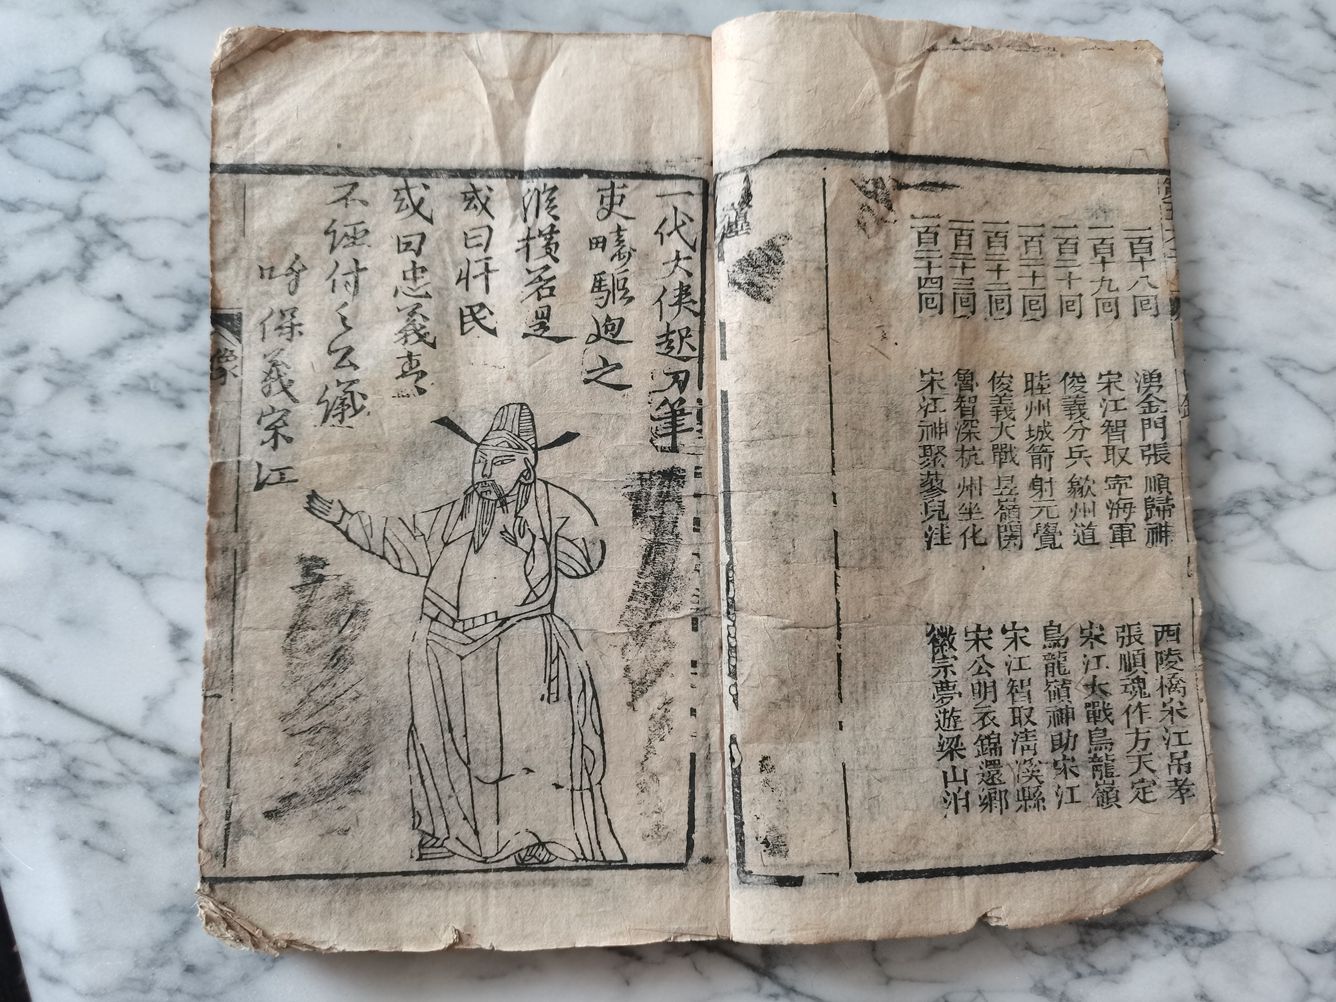 一百十八回
湧金門張順歸神
西陵橋宋江吊孝
一百十九回
宋江智取寧海軍
張順魂作方天定
一百二十回
俊義分兵歙州道
宋江大戰烏龍嶺
一百二十一回
睦州城箭射元覺
烏龍嶺神助宋江
一百二十二回
俊義大戰昱嶺関
宋江智取清溪縣
一百二十三回
魯智深杭州坐化
宋公明衣錦還鄉
一百二十四回
宋江神聚蓼兒洼
徽宗夢遊梁山泊
一代大俠起刀筆
吏疇驅迫之
縱橫若是
或曰奸民
或曰忠義
不經付之公議
呼保義宋江
像